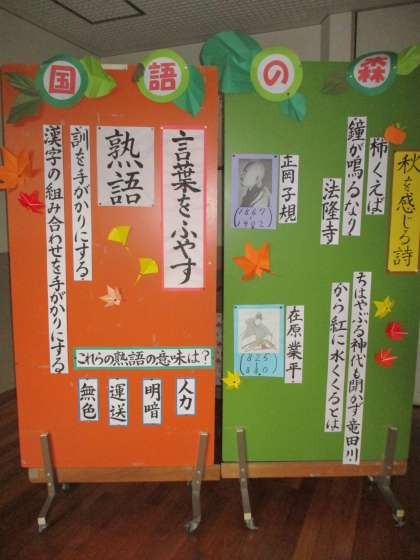 国語の森
秋を感じる詩
柿くえば
鐘が鳴るなり
法隆寺
正岡子規
(1867
1902)
ちはやぶる神代も聞かず竜田川
から紅に水くくるとは
在原業平
(825
880)
言葉をふやす
熟語
訓を手がかりにする
漢字の組み合わせを手がかりにする
これらの熟語の意味は?
人力
明暗
運送
無色